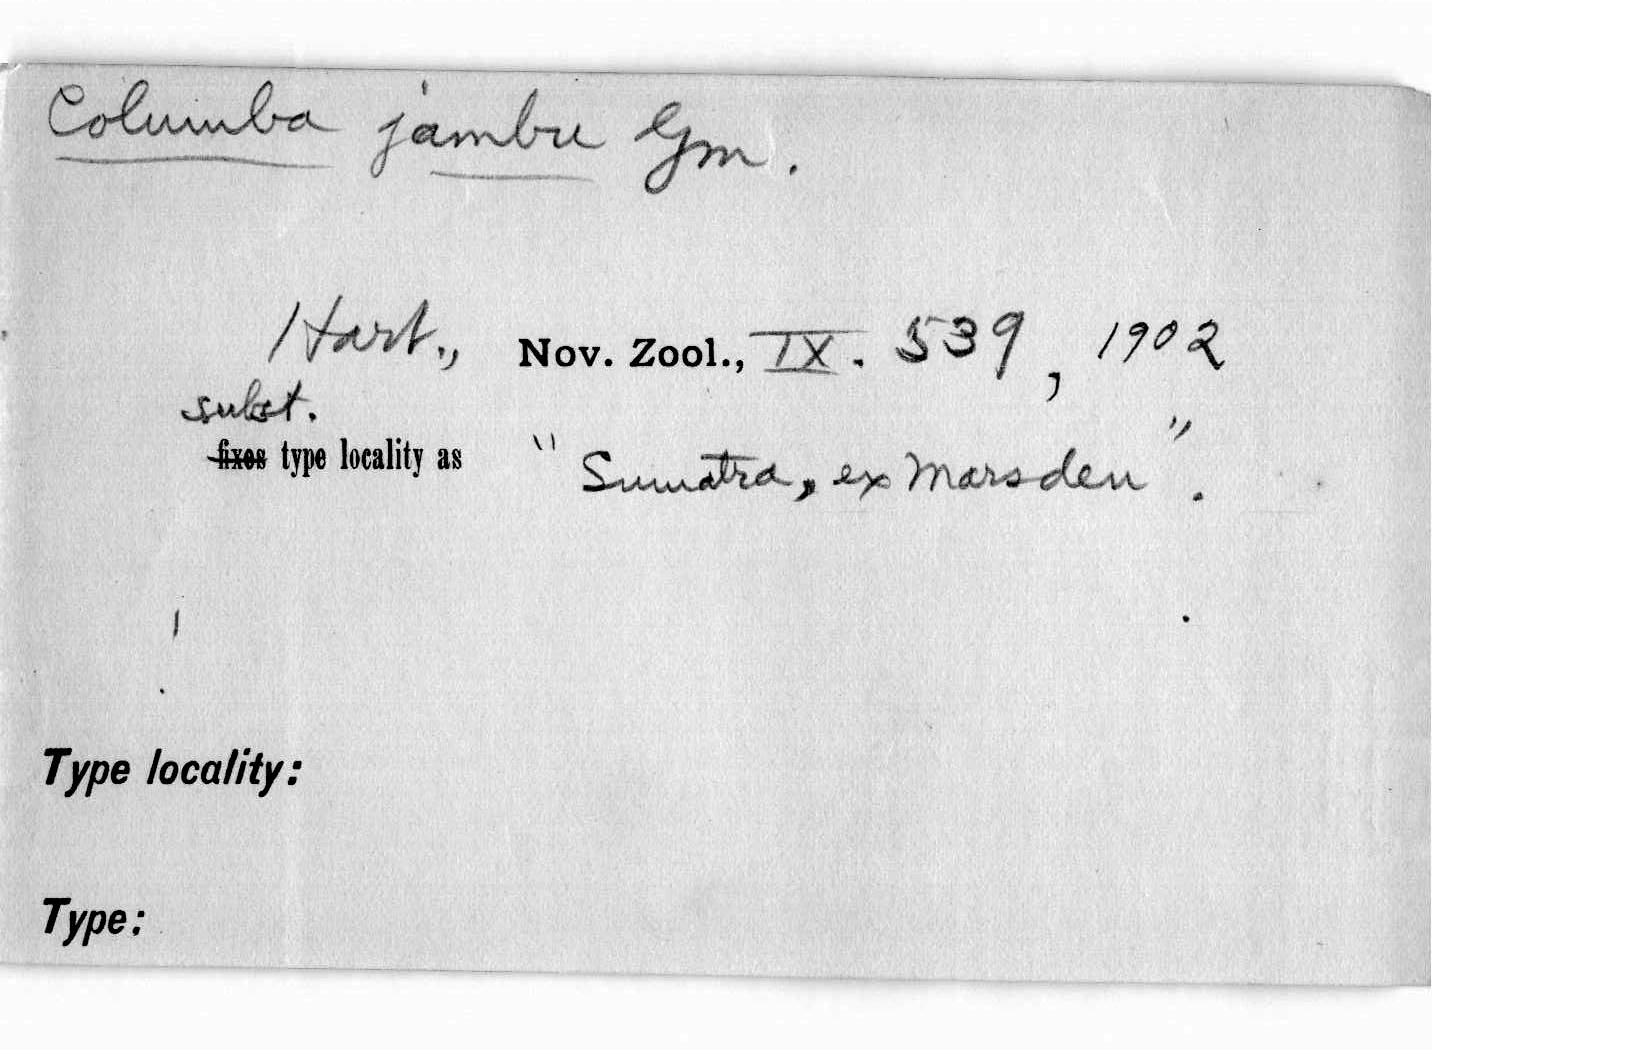 Columba jambu Gm.
Hart., Nov. Zool., IX. 539, 1902
subst.
fixes type locality as "Sumatra, ex Marsden".
Type locality:
Type: